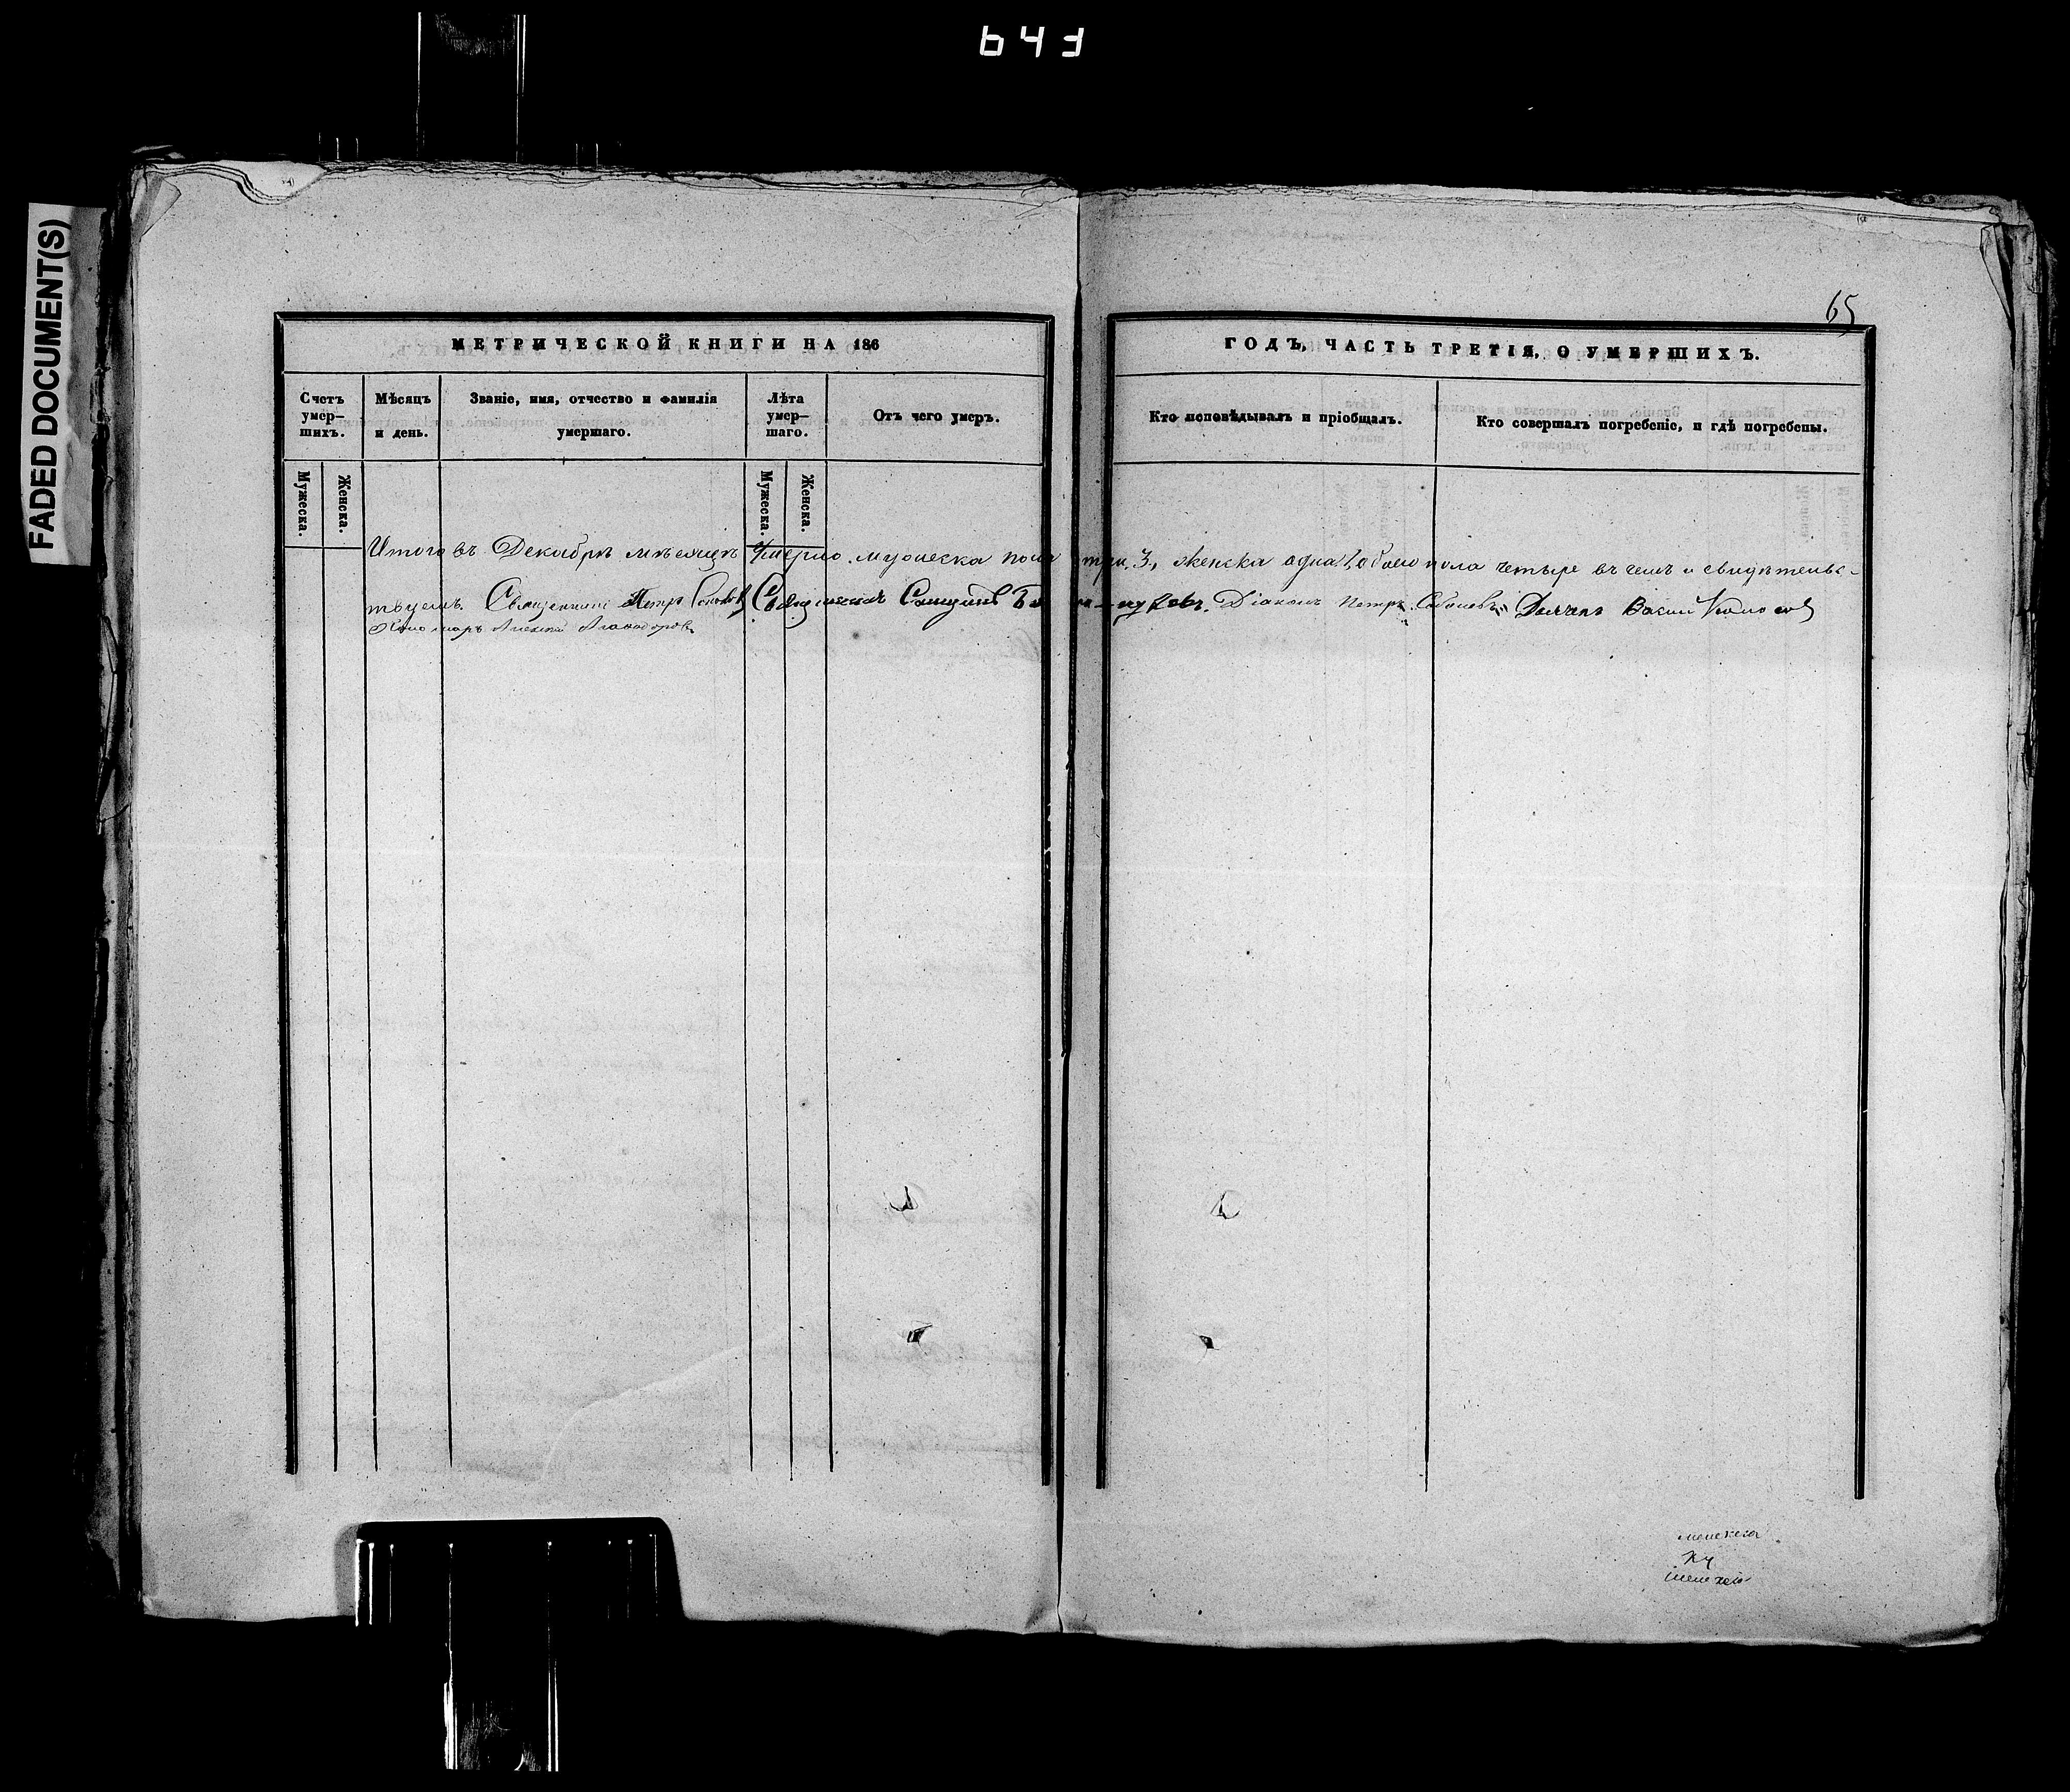 643
FADED DOCUMENT(S)
65
МЕТРИЧЕСКОЙ КНИГИ НА 186
ГОДЪ, ЧАСТЬ ТРЕТІЯ, О УМЕРШИХЪ.
Счетъ умер-
шихъ.
Мѣсяцъ
и день.
Званіе, имя, отчество и фамилія
умершаго.
Лѣта
умер-
шаго.
Отъ чего умеръ.
Кто исповѣдывалъ и пріобщалъ.
Кто совершалъ погребеніе, и гдѣ погребены.
Мужеска.
Женска.
Мужеска.
Женска.
Итого въ Декабрѣ мѣсяцѣ умерло мужеска пола три 3, женска одна 1 обоего пола четыре въ чемъ и свидѣтельс-
твуемъ. Священникъ Петръ Священникъ Діаконъ Петръ Дьячекъ Васил
Пономарь Алексей